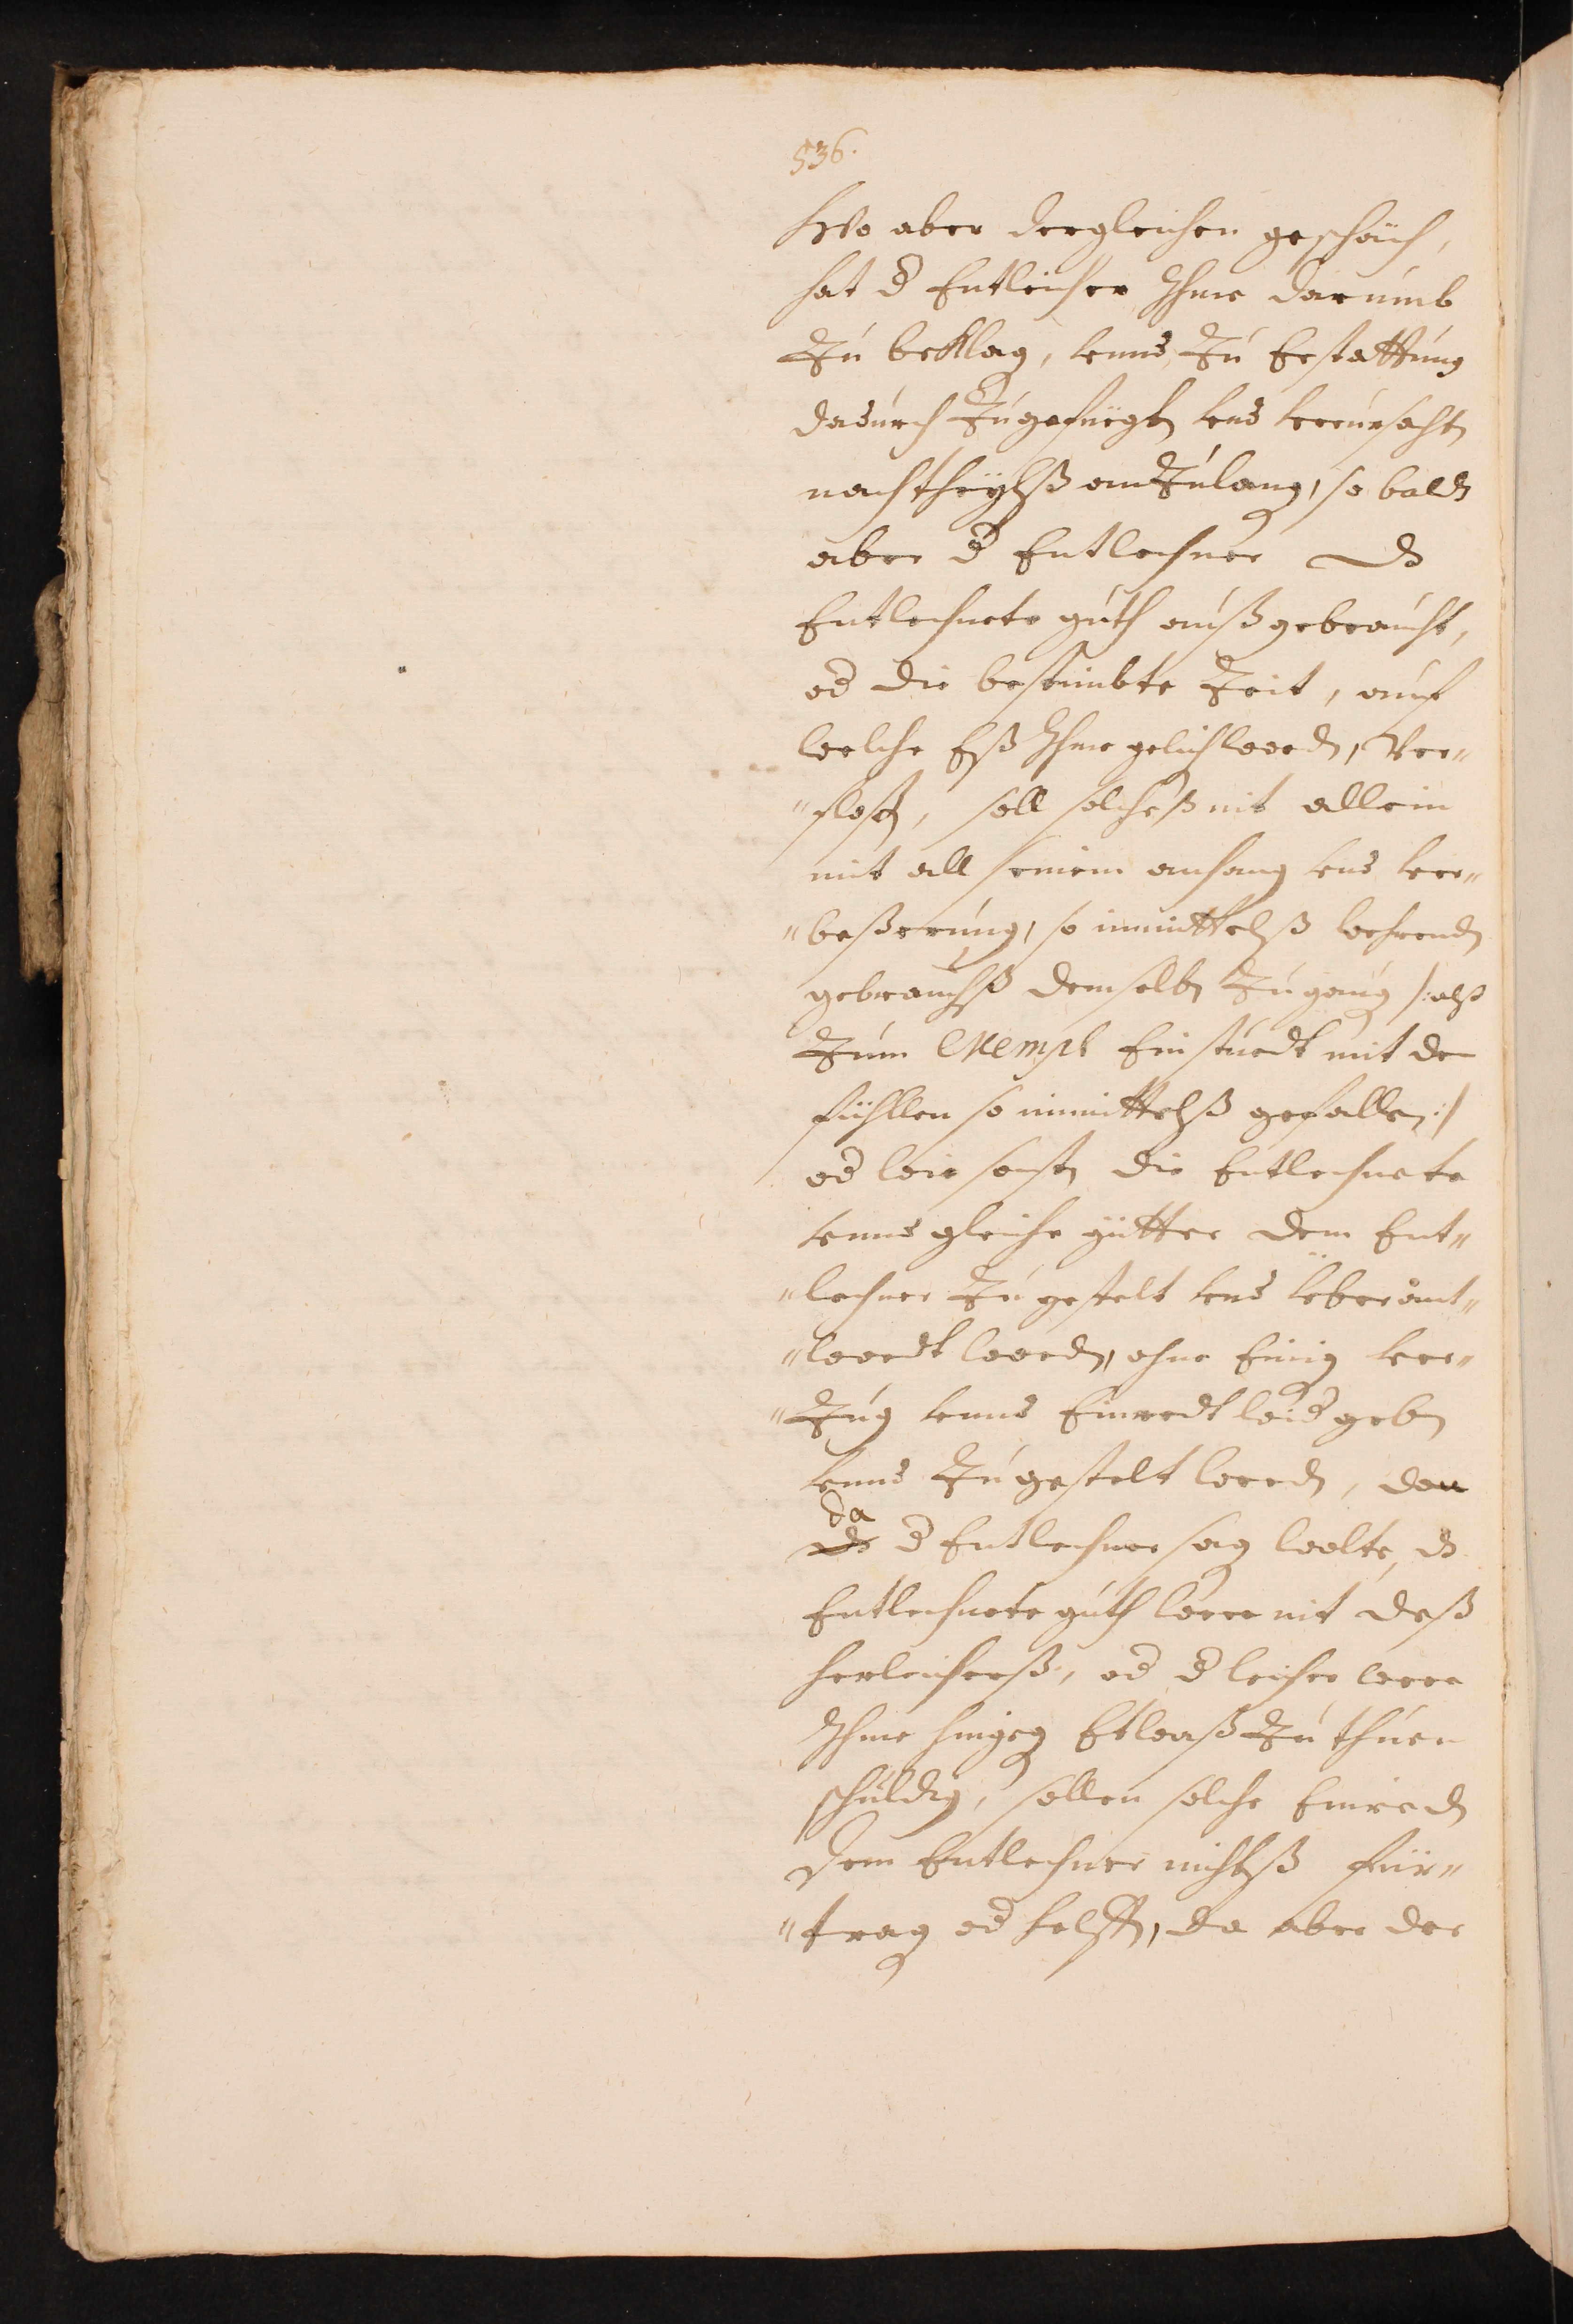 536.
Wo aber dergleichen geschäch,
hat d Entleiher Ihme darumb
Zu beklag, unnd Zu Erstattung
dadurch Zugefüegtn und verursachtn
nachtheylß anZulang, so baldt
aber d Entlechner ds
Entlechnete guth außgebraucht,
od die bestimbte Zeit, auf
welche Eß Ihme gelich wordn, Ver„
„flosn, soll solcheß nit allein
mit all seinem anhang und ver„
„beßerung, so inmittelß wehrendn
gebrauchß demselbn Zugang /: alß
Zum exempl Ein stuedt mit de
fühllen so inmittelß gefallen :/
od wie sonstn die Entlechnete
unnd gleiche gütter dem Ent„
„lechner Zugestelt und überant„
„wordt wordn, ohne Einig ver„
„Zug unnd Einredt wid gebn
unnd Zugestelt werdn, dan
da
ds d Entlechner sag wolte, ds
Entlechnete guth were nit deß
herleiherß, od d leiher were
Ihme hingeg Etwaß Zu thuen
schuldig, sollen solche Einredn
dem Entlechner nichtß für„
„trag od helffn, da aber der